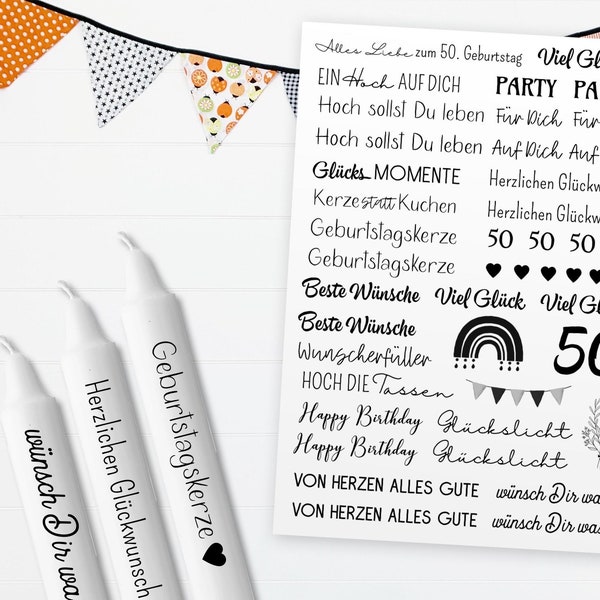 Alles Liebe zum 50. Geburtstag Viel Glü
EIN Hoch AUF DICH PARTY PA
Hoch sollst Du leben Für Dich Für
Hoch sollst Du leben Auf Dich Auf
Glücks MOMENTE Herzlichen Glückw
Kerze statt Kuchen Herzlichen Glückw
Geburtstagskerze 50 50 50
Geburtstagskerze
Beste Wünsche Viel Glück Viel Glü
Beste Wünsche 50
Wunscherfüller
HOCH DIE Tassen
Happy Birthday Glückslicht
Happy Birthday Glückslicht
VON HERZEN ALLES GUTE wünsch Dir wa
VON HERZEN ALLES GUTE wünsch Dir was
wünsch Dir was
Herzlichen Glückwunsch
Geburtstagskerze